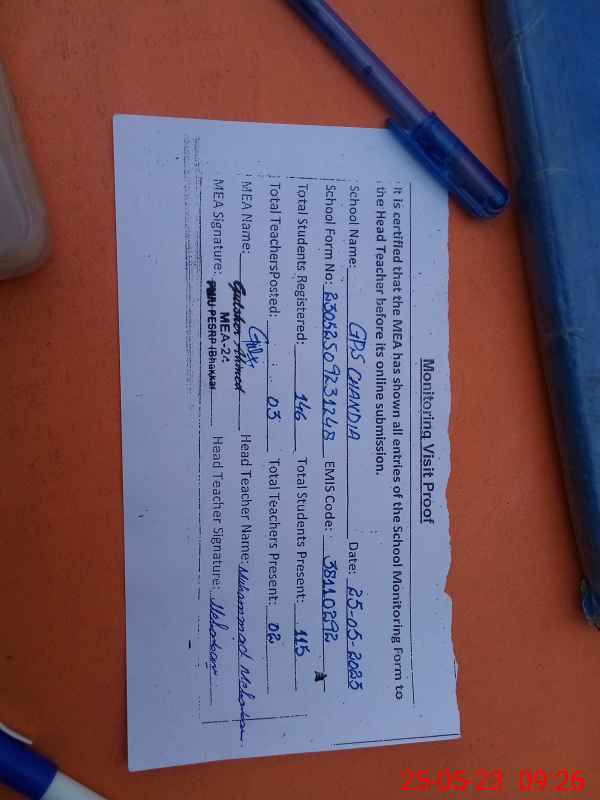 Monitoring Visit Proof
It is certified that the MEA has shown all entries of the School Monitoring Form to
the Head Teacher before its online submission.
School Name: GPS CHANDIA Date: 25-05-2023
School Form No: 23052509231248 EMIS Code: 38110292
Total Students Registered: 146 Total Students Present: 115
Total TeachersPosted: 03 Total Teachers Present: 02
MEA Name: Gulsher Ahmed Head Teacher Name: Muhammad
MEA-2
MEA Signature: PMIU-PESRP (Bhakkar Head Teacher Signature:
25-05-23 09:26